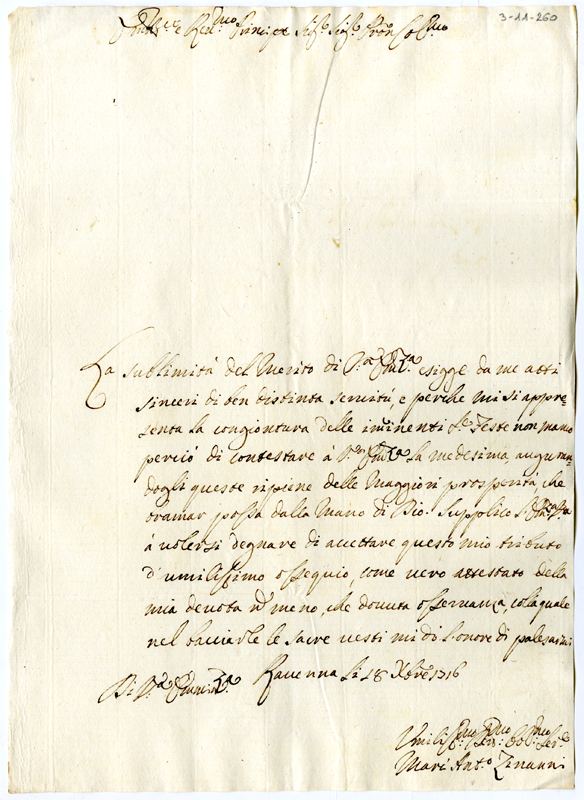 3-11-260
Em.mo e Rev.mo Principe Sig.r Sig.r Pron Col.mo
La sublimità del Merito di V.a Em.za esigge da me atti
sinceri di ben distinta servitù, e perche mi si appre=
senta la congiontura delle iminenti S.te Feste non manco
perciò di contestare à V.ra Em.za la medesima, auguran=
dogli queste ripiene delle Maggiori prosperità che
bramar possa dalla Mano di Dio. Supplico
à volersi degnare di accettare questo mio tributo
d'umilissimo ossequio, come vero attestato della
mia devota nō meno, che dovuta osservanza, colla quale
nel bacciarle le sacre vesti mi dò l'onore di palesarmi
Di V.a Eminza
Ravenna li 18 Xbre 1716
Umiliss.mo Ser.
Mari Ant.o Zinanni